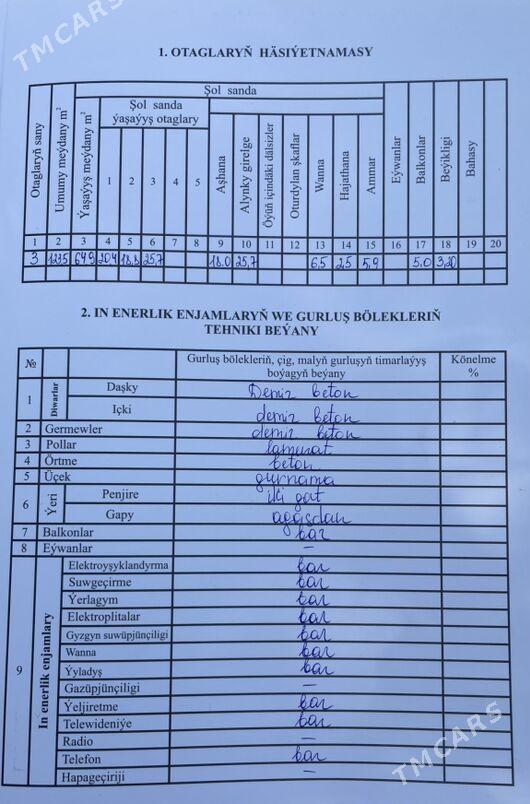 TMCARS
1. OTAGLARYŇ HÄSIÝETNAMASY
Otaglaryň sany
Umumy meýdany m²
Ýaşaýyş meýdany m²
Şol sanda
Şol sanda
ýaşaýyş otaglary
1 2 3 4 5
Aşhana
Alynky girelge
Öýüň içindäki dälsizler
Oturdylan şkaflar
Wanna
Hajathana
Ammar
Eýwanlar
Balkonlar
Beýikligi
Bahasy
1 2 3 4 5 6 7 8 9 10 11 12 13 14 15 16 17 18 19 20
3 123.5 64.9 20,4 18.8 25,7 18.0 25,7 6.5 2.5 5,9 5.0 3,20
2. IN ENERLIK ENJAMLARYŇ WE GURLUŞ BÖLEKLERIŇ
TEHNIKI BEÝANY
№ Gurluş bölekleriň, çig, malyň gurluşyň timarlaýyş Könelme
boýagyň beýany %
1 Diwarlar Daşky Demir beton
Içki demir beton
2 Germewler demir beton
3 Pollar laminat
4 Örtme beton
5 Üçek gurnama
6 Ýeri Penjire iki gat
Gapy agaşdan
7 Balkonlar bar
8 Eýwanlar –
9 In enerlik enjamlary Elektroyşyklandyrma bar
Suwgeçirme bar
Ýerlagym bar
Elektroplitalar bar
Gyzgyn suwüpjünçiligi bar
Wanna bar
Ýyladyş bar
Gazüpjünçiligi –
Ýeljiretme bar
Telewideniýe bar
Radio –
Telefon bar
Hapageçiriji –
TMCARS